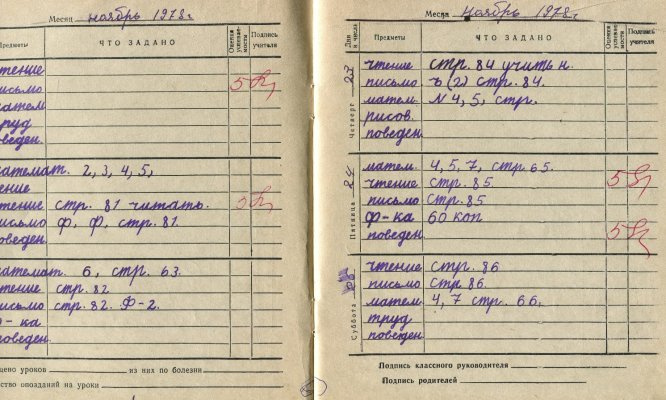 Месяц ноябрь 1978 г
Предметы ЧТО ЗАДАНО Оценка успеваемости Подпись учителя
чтение
письмо 5
матем
труд
поведен.
математ. 2, 3, 4, 5,
чтение стр. 81 читать. 5
письмо Ф, ф, стр. 81.
поведен
математ. 6, стр. 63.
чтение стр. 82
письмо стр. 82. Ф-2.
ф-ка
поведен.
уроков из них по болезни
опозданий на уроки
Месяц Ноябрь 1978г.
Дни и числа Предметы ЧТО ЗАДАНО Оценка успеваемости Подпись учителя
Четверг 23
чтение стр. 84 учить н.
письмо ъ (2) стр. 84.
матем. N 4, 5, стр.
рисов.
поведен
Пятница 24
матем. 4, 5, 7, стр 65.
чтение стр. 85 5
письмо стр. 85
ф-ка 60 коп
поведен. 5
Суббота
чтение стр. 86
письмо стр 86.
матем 4, 7 стр. 66.
труд
поведен.
Подпись классного руководителя
Подпись родителей